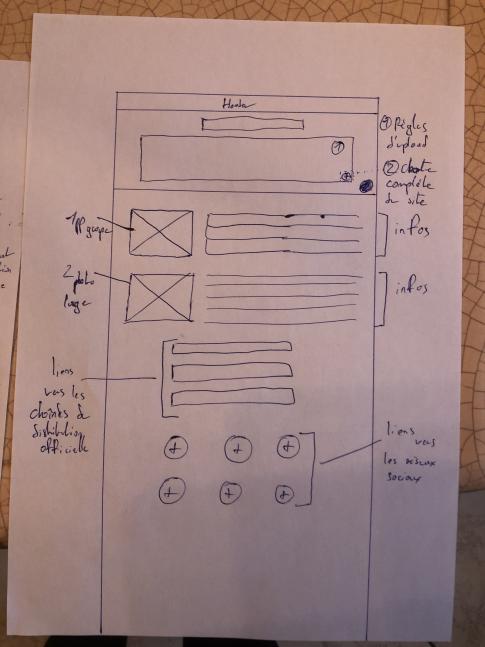 Header
① Règles
d'upload
①
② charte
complète
du site
1 PP groupe
infos
2 photo
large
infos
liens
vers les
chaînes de
distribution
officielle
liens
vers
les réseaux
sociaux